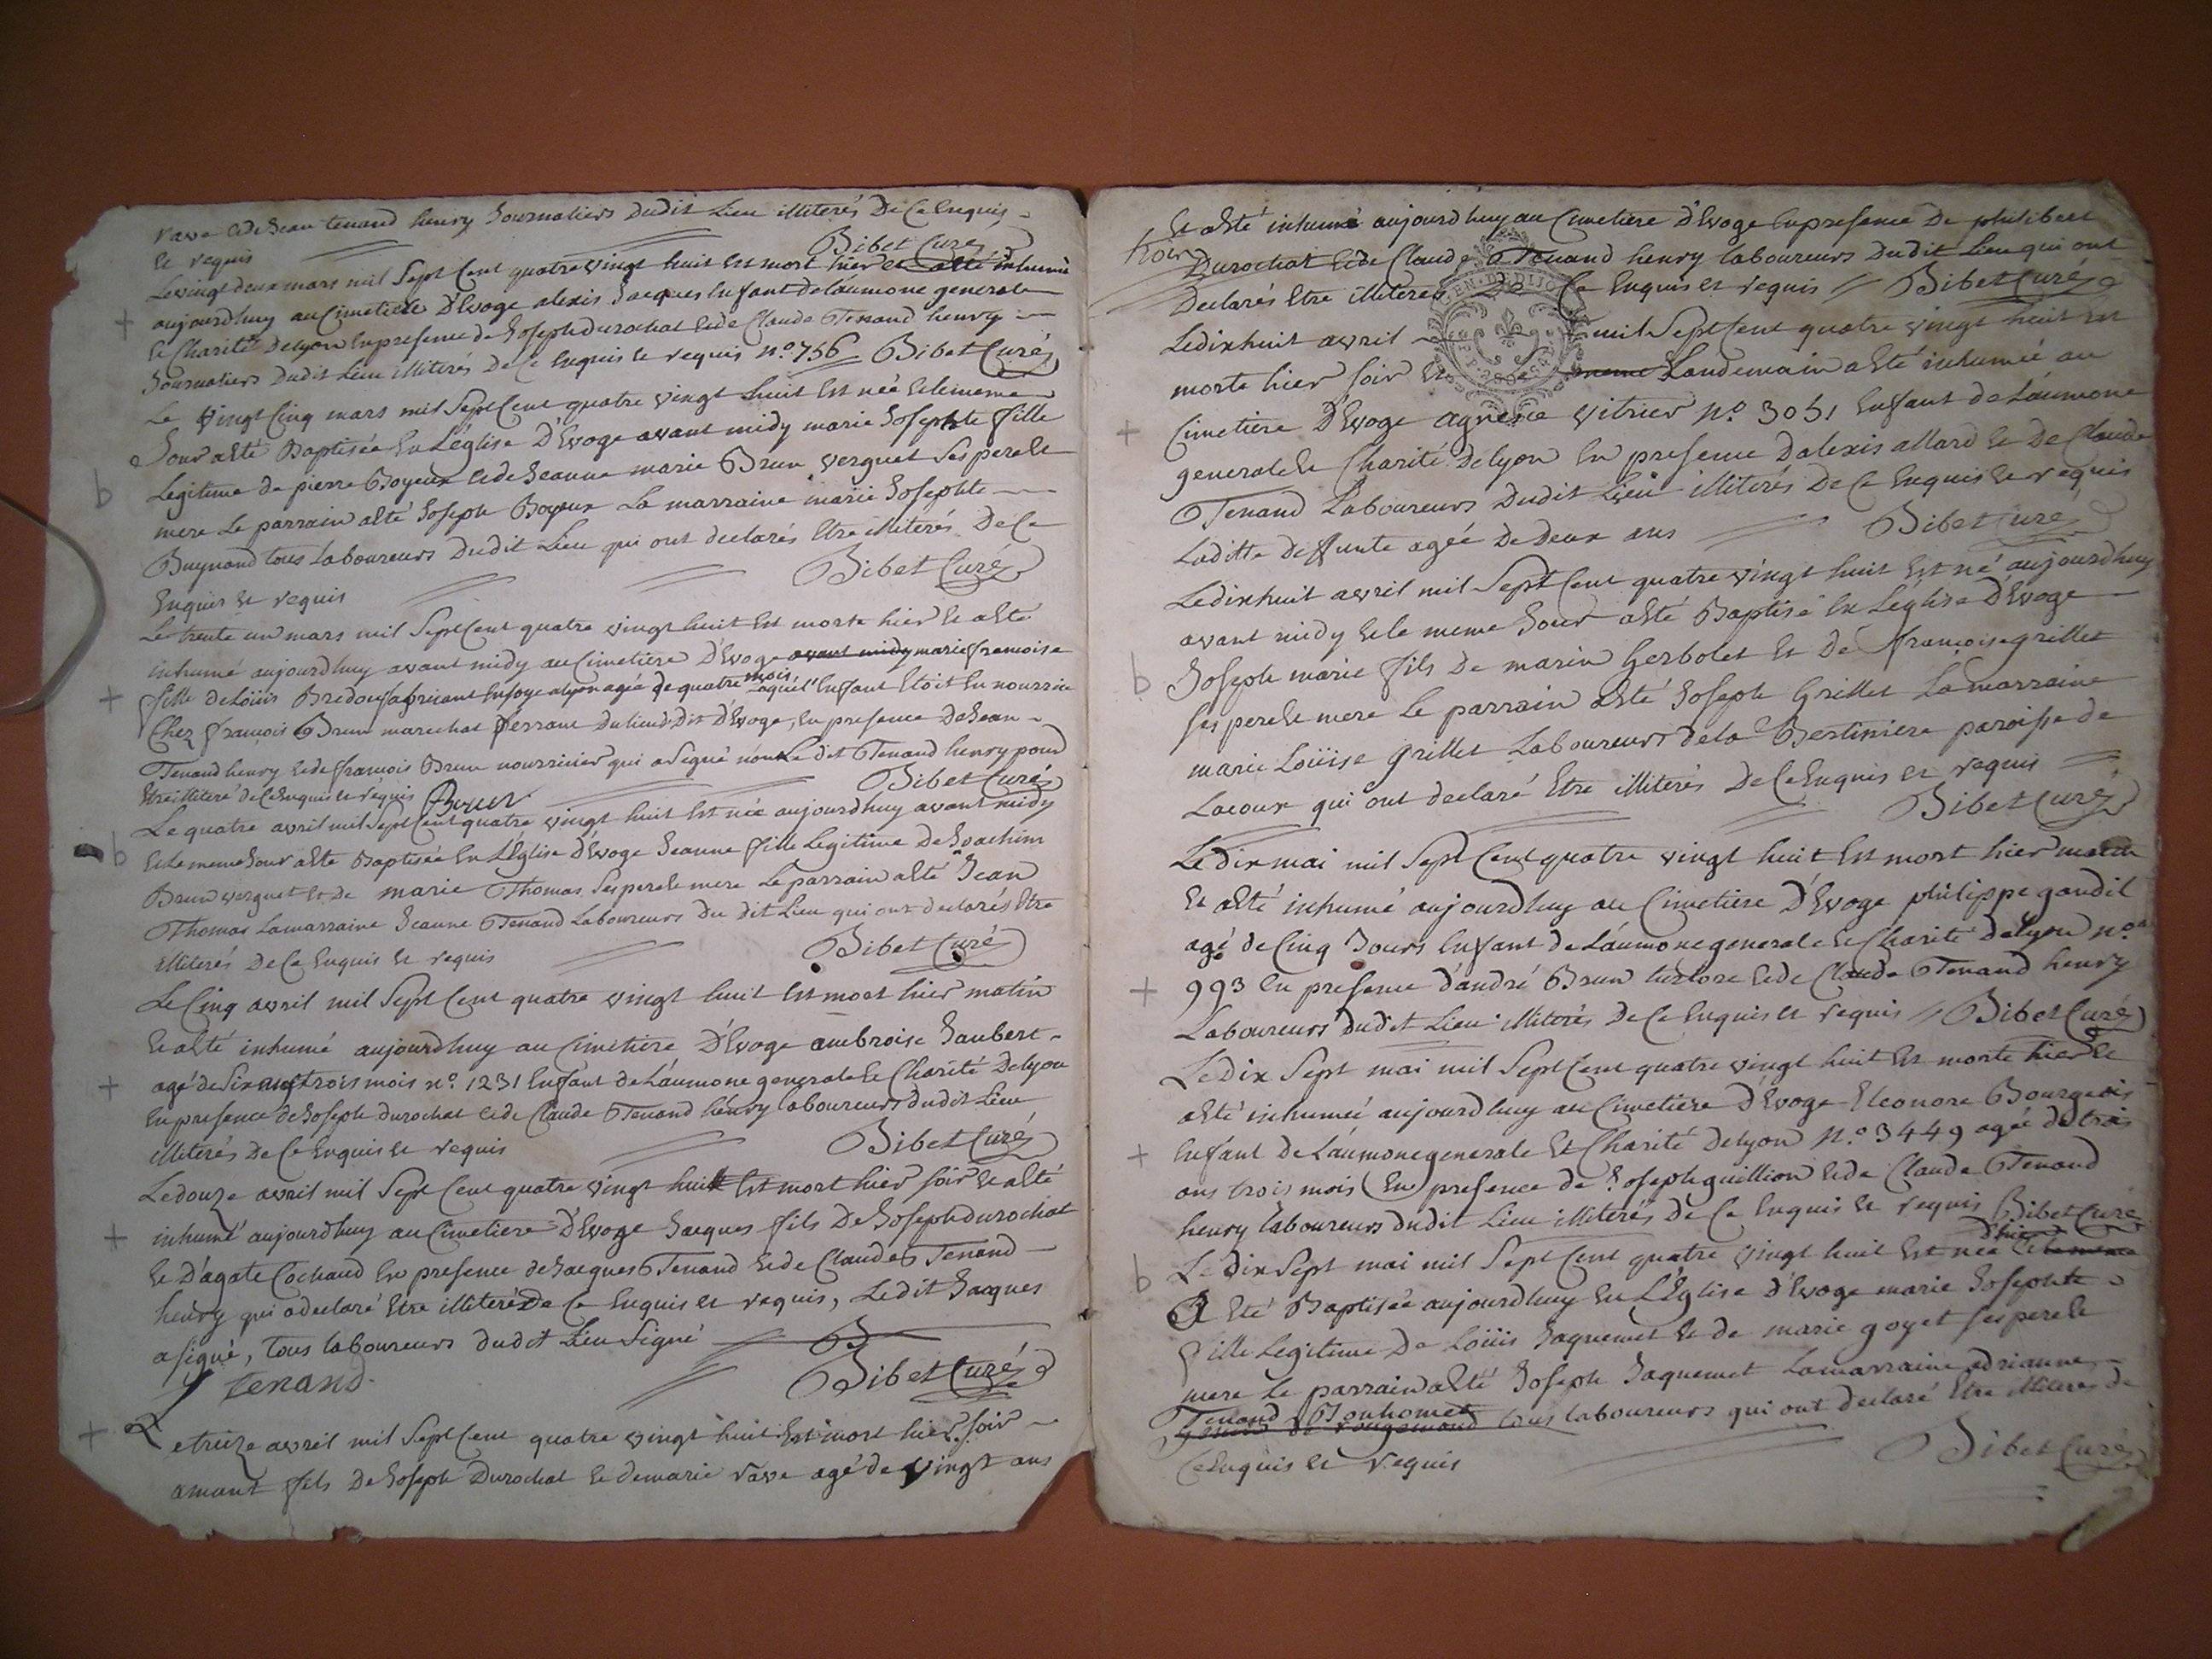 rave et de Jean tenand henry Journaliers dudit Lieu illiterés De Ce Enquis
et requis Bibet Curé
Le vingt deux mars mil Sept Cent quatre vingt huit Est mort hier et a été inhumé
aujourdhuy au Cimetiere D'Evoge alexis Jacques Enfant de Laumone generale
et Charité De lyon En presence de Joseph durochat et de Claude Tenand henry
Journaliers Dudit Lieu illiterés De Ce Enquis et requis n.o 756 Bibet Curé
Le vingt Cinq mars mil Sept Cent quatre vingt huit Est née et le meme
Jour a été Baptisée En L'église D'Evoge avant midy marie Josephte fille
Legitime de pierre Boyeux et de Jeanne marie Brun verguet Ses pere et
mere Le parrain a été Joseph Boyeux La marraine marie Josephte
Buynand tous Laboureurs Dudit Lieu qui ont declarés Etre illiterés De Ce
Enquis et requis Bibet Curé
Le trente un mars mil Sept Cent quatre vingt huit Est morte hier et a été
inhumé aujourdhuy avant midy au Cimetiere D'Evoge avant midy marie francoise
fille de Loüis Bredou fabricant En soye a lyon agée de quatre mois Laquel Enfant Etoit En nourrice
Chez francois Brun marechal ferrant du lieud Dit D'Evoge, En presence De Jean
Tenand henry et de francois Brun nourricier qui a Signé non Le dit Tenand henry pour
Etre illiteré de Ce Enquis et requis Brun Bibet Curé
Le quatre avril mil Sept Cent quatre vingt huit Est née aujourdhuy avant midy
et Le meme Jour a été Baptisée En L'Eglise D'Evoge Jeanne fille Legitime De Joachim
Brun verguet et de marie Thomas Ses pere et mere Le parrain a été Jean
Thomas La marraine Jeanne Tenand Laboureurs Du dit Lieu qui ont declarés Etre
illiterés De Ce Enquis et requis Bibet Curé
Le Cinq avril mil Sept Cent quatre vingt huit Est mort hier matin
et a été inhumé aujourdhuy au Cimetiere D'Evoge ambroise Jaubert
agé de Six ans trois mois n.o 1231 Enfant de Laumone generale et Charité De lyon
En presence de Joseph durochat et de Claude Tenand henry laboureurs dudit Lieu
illiterés De Ce Enquis et requis Bibet Curé
Le douze avril mil Sept Cent quatre vingt huit Est mort hier soir et a été
inhumé aujourdhuy au Cimetiere D'Evoge Jacques fils De Joseph durochat
et D'agate Cochaud En presence de Jacques Tenand et de Claude Tenand
henry qui a declaré Etre illiterés De Ce Enquis et requis, Le dit Jacques
a signé, tous laboureurs dudit Lieu Signé
J tenand. Bibet Curé
Le treize avril mil Sept Cent quatre vingt huit Est mort hier soir
amant fils De Joseph Durochat et de marie rave agé de vingt ans
Et a été inhumé aujourdhuy au Cimetiere D'Evoge En presence De philibert
Durochat et de Claude Tenand henry laboureurs Dudit Lieu qui ont
Declarés Etre illiterés De Ce Enquis et requis Bibet Curé
GEN. DE DIJON
Le dix huit avril mil Sept Cent quatre vingt huit Est
morte hier soir et meme Landemain a été inhumée au
Cimetiere D'Evoge agnesce vitrier n.o 3051 Enfant de Laumone
generale et Charité De lyon En presence D'alexis allard et De Claude
Tenand Laboureurs Dudit Lieu illiterés De Ce Enquis et requis
Laditte deffunte agée De deux ans Bibet Curé
Le dix huit avril mil Sept Cent quatre vingt huit Est né aujourdhuy
avant midy et le meme Jour a été Baptisé En L'église D'Evoge
Joseph marie fils De marin Gerbolet et De françoise grillet
ses pere et mere Le parrain a été Joseph Grillet La marraine
marie Loüise grillet Laboureurs de la Bertiniere paroisse de
Lacoux qui ont declaré Etre illiterés De Ce Enquis et requis
Bibet Curé
Le Dix mai mil Sept Cent quatre vingt huit Est mort hier matin
Et a été inhumé aujourdhuy au Cimetiere D'Evoge philippe gandil
agé de Cinq Jours Enfant de Laumone generale et Charité de lyon n.o
993 En presence d'andré Brun et de Claude Tenand henry
Laboureurs dudit Lieu illiterés De Ce Enquis et requis Bibet Curé
Le Dix Sept mai mil Sept Cent quatre vingt huit Est morte hier et
a été inhumeé aujourdhuy au Cimetiere D'Evoge Eleonore Bourgeois
Enfant de Laumone generale Et Charité De lyon N.o 3449 agée de trois
ans trois mois En presence de Joseph guillion et de Claude Tenand
henry laboureurs dudit Lieu illiterés de Ce Enquis et requis Bibet Curé
Le Dix Sept mai mil Sept Cent quatre vingt huit Est née d'hier et le meme
A Eté Baptisée aujourdhuy En L'Eglise d'Evoge marie Josephte
fille Legitime De Loüis Jaquemet et de marie goyet ses pere et
mere Le parrain a été Joseph Jaquemet La marraine adrianne
Tenand Bonhomet tous laboureurs qui ont declaré Etre illiterés de
Ce Enquis et requis Bibet Curé